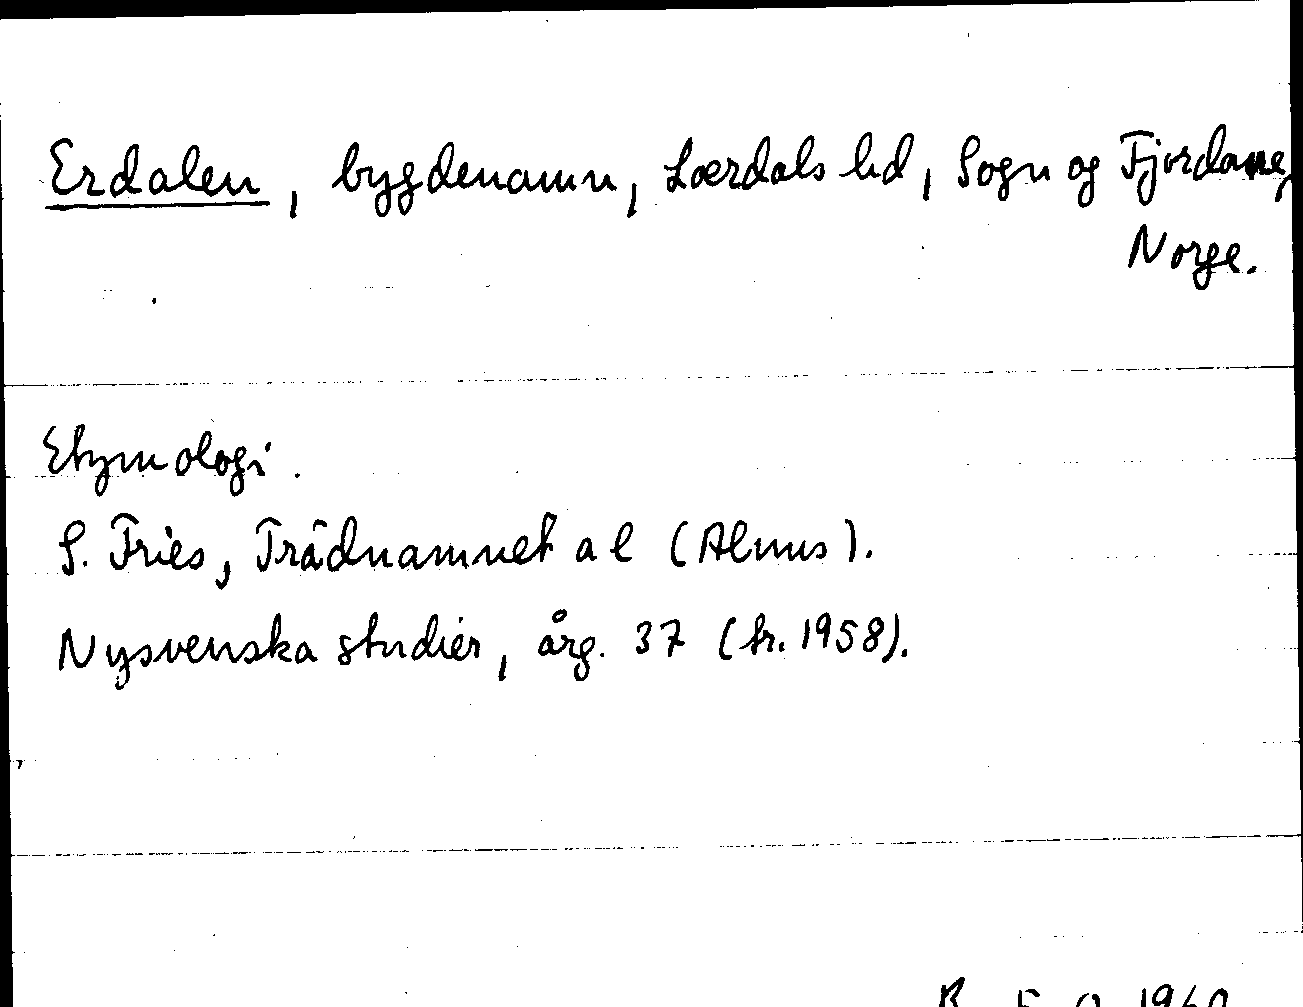 Erdalen, bygdenamn, Lærdals hd, Sogn og Fjordane,
Norge.
Etymologi.
S. Fries, Trädnamnet al (Alnus).
Nysvenska studier, årg. 37 (tr. 1958).